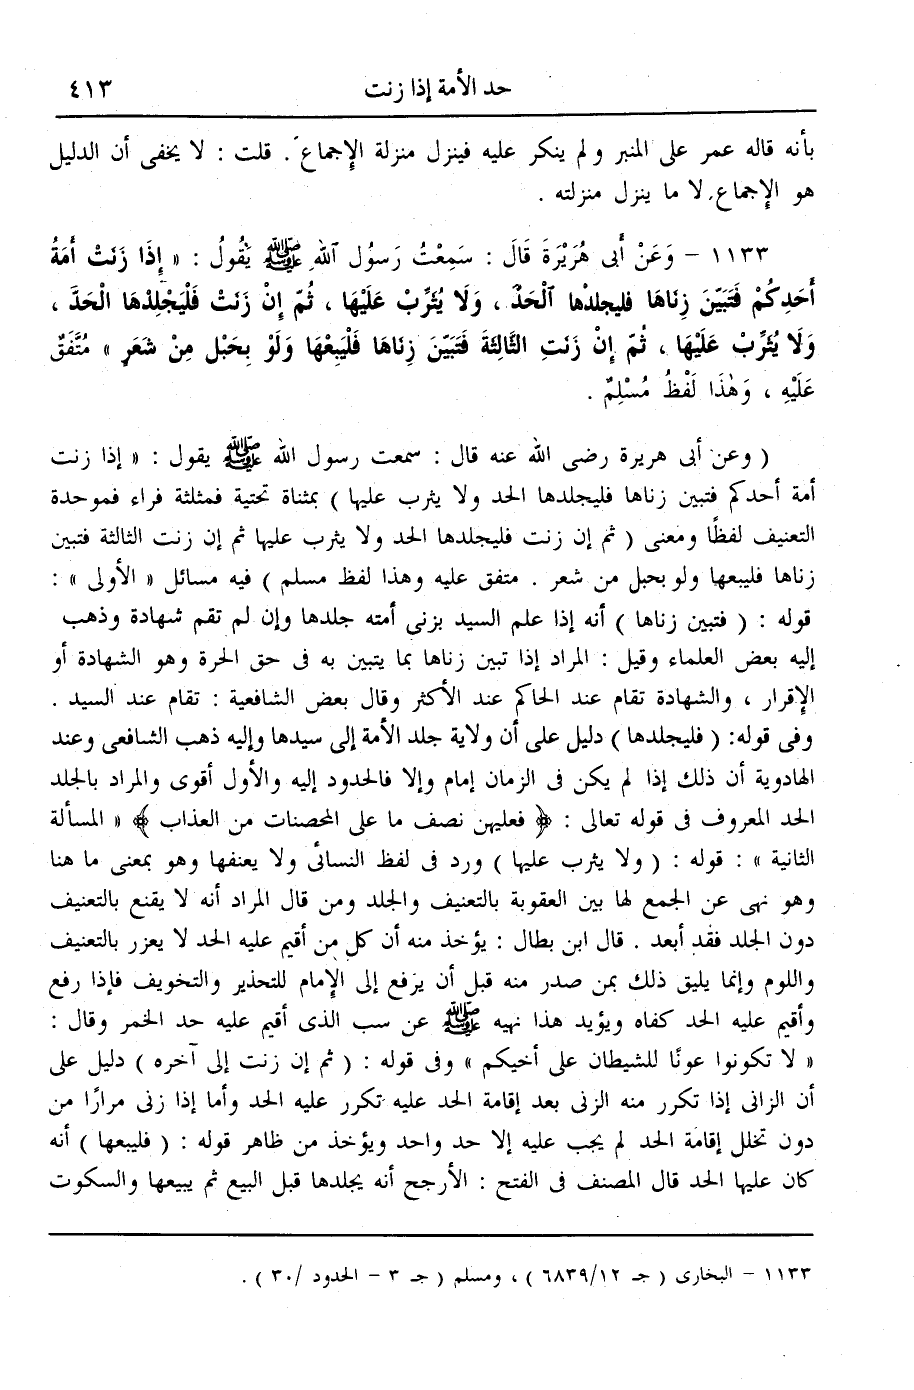 حد الأمة إذا زنت ٤١٣
بأنه قاله عمر على المنبر ولم ينكر عليه فينزل منزلة الإجماع . قلت : لا يخفى أن الدليل
هو الإجماع لا ما ينزل منزلته .
١١٣٣ – وَعَنْ أَبِى هُرَيْرَةَ قَالَ : سَمِعْتُ رَسُولَ ٱللهِ ﷺ يَقُولُ : « إِذَا زَنَتْ أَمَةُ
أَحَدِكُمْ فَتَبَيَّنَ زِنَاهَا فليجلدْها ٱلْحَدَّ ، وَلَا يُثَرِّبْ عَلَيْهَا ، ثُمّ إِنْ زَنَتْ فَلْيَجْلِدْهَا الْحَدَّ ،
وَلَا يُثَرِّبْ عَلَيْهَا ، ثُمّ إِنْ زَنَتِ الثَّالِثَةَ فَتَبَيّنَ زِنَاهَا فَلْيَبِعْهَا وَلَوْ بِحَبْلٍ مِنْ شَعَرٍ » مُتَّفَقٌ
عَلَيْهِ ، وَهٰذَا لَفْظُ مُسْلِمٌ .
( وعن أبى هريرة رضى الله عنه قال : سمعت رسول الله ﷺ يقول : « إذا زنت
أمة أحدكم فتبين زناها فليجلدها الحد ولا يثرب عليها ) بمثناة تحتية فمثلثة فراء فموحدة
التعنيف لفظًا ومعنى ( ثم إن زنت فليجلدها الحد ولا يثرب عليها ثم إن زنت الثالثة فتبين
زناها فليبعها ولو بحبل من شعر . متفق عليه وهذا لفظ مسلم ) فيه مسائل « الأولى » :
قوله : ( فتبين زناها ) أنه إذا علم السيد بزنى أمته جلدها وإن لم تقم شهادة وذهب
إليه بعض العلماء وقيل : المراد إذا تبين زناها بما يتبين به فى حق الحرة وهو الشهادة أو
الإقرار ، والشهادة تقام عند الحاكم عند الأكثر وقال بعض الشافعية : تقام عند السيد .
وفى قوله: ( فليجلدها ) دليل على أن ولاية جلد الأمة إلى سيدها وإليه ذهب الشافعى وعند
الهادوية أن ذلك إذا لم يكن فى الزمان إمام وإلا فالحدود إليه والأول أقوى والمراد بالجلد
الحد المعروف فى قوله تعالى : ﴿ فعليهن نصف ما على المحصنات من العذاب ﴾ « المسألة
الثانية » : قوله : ( ولا يثرب عليها ) ورد فى لفظ النسائى ولا يعنفها وهو بمعنى ما هنا
وهو نهى عن الجمع لها بين العقوبة بالتعنيف والجلد ومن قال المراد أنه لا يقنع بالتعنيف
دون الجلد فقد أبعد . قال ابن بطال : يؤخذ منه أن كل من أقيم عليه الحد لا يعزر بالتعنيف
واللوم وإنما يليق ذلك بمن صدر منه قبل أن يرفع إلى الإمام للتحذير والتخويف فإذا رفع
وأقيم عليه الحد كفاه ويؤيد هذا نهيه ﷺ عن سب الذى أقيم عليه حد الخمر وقال :
« لا تكونوا عونًا للشيطان على أخيكم » وفى قوله : ( ثم إن زنت إلى آخره ) دليل على
أن الزانى إذا تكرر منه الزنى بعد إقامة الحد عليه تكرر عليه الحد وأما إذا زنى مرارًا من
دون تخلل إقامة الحد لم يجب عليه إلا حد واحد ويؤخذ من ظاهر قوله : ( فليبعها ) أنه
كان عليها الحد قال المصنف فى الفتح : الأرجح أنه يجلدها قبل البيع ثم يبيعها والسكوت
١١٣٣ – البخارى ( جـ ١٢/٦٨٣٩ ) ، ومسلم ( جـ ٣ – الحدود /٣٠ ) .